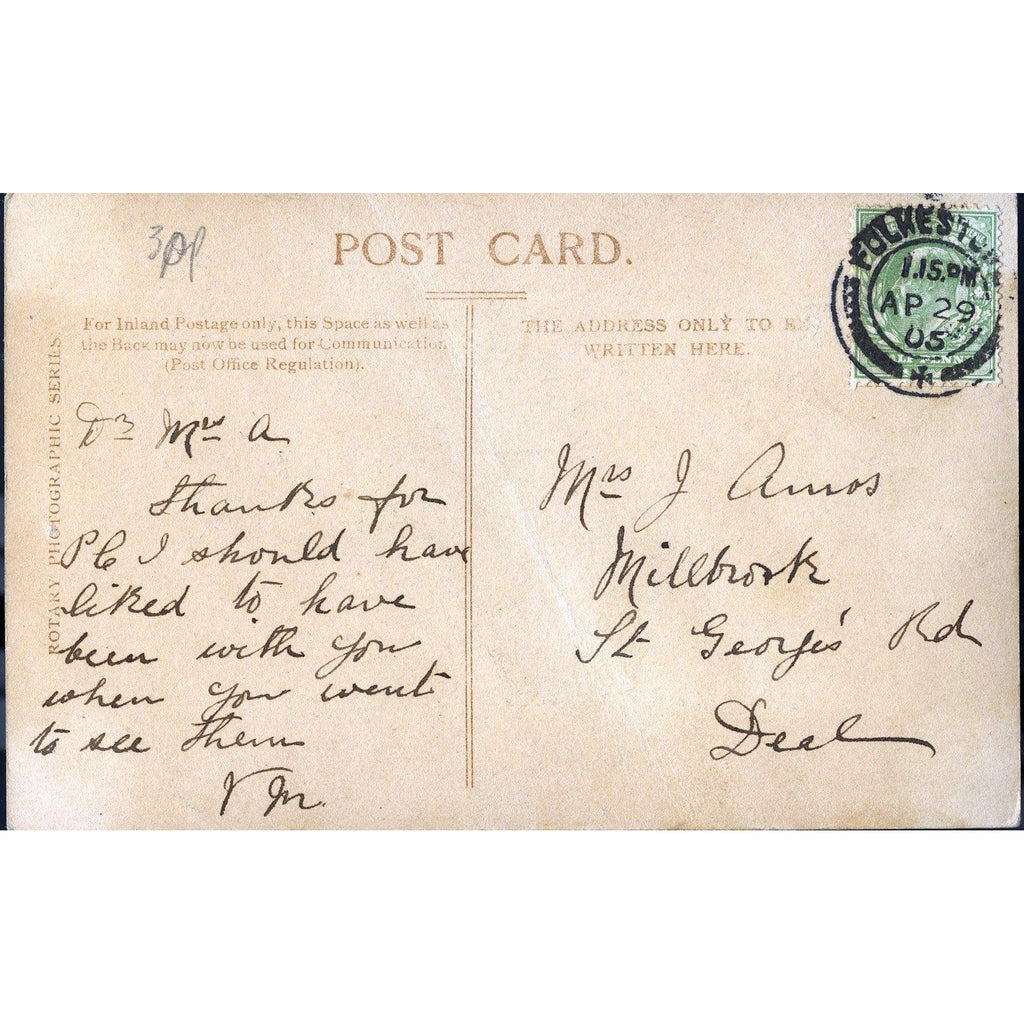 POST CARD.
For Inland Postage only, this Space as well as
the Back may now be used for Communication
(Post Office Regulation).
THE ADDRESS ONLY TO BE
WRITTEN HERE.
ROTARY PHOTOGRAPHIC SERIES
FOLKESTO
1.15.PM
AP 29
05
Dr Mrs A
Thanks for
PC I should have
liked to have
been with you
when you went
to see them
V M.
Mrs J Amos
Millbrook
St George's Rd
Deal